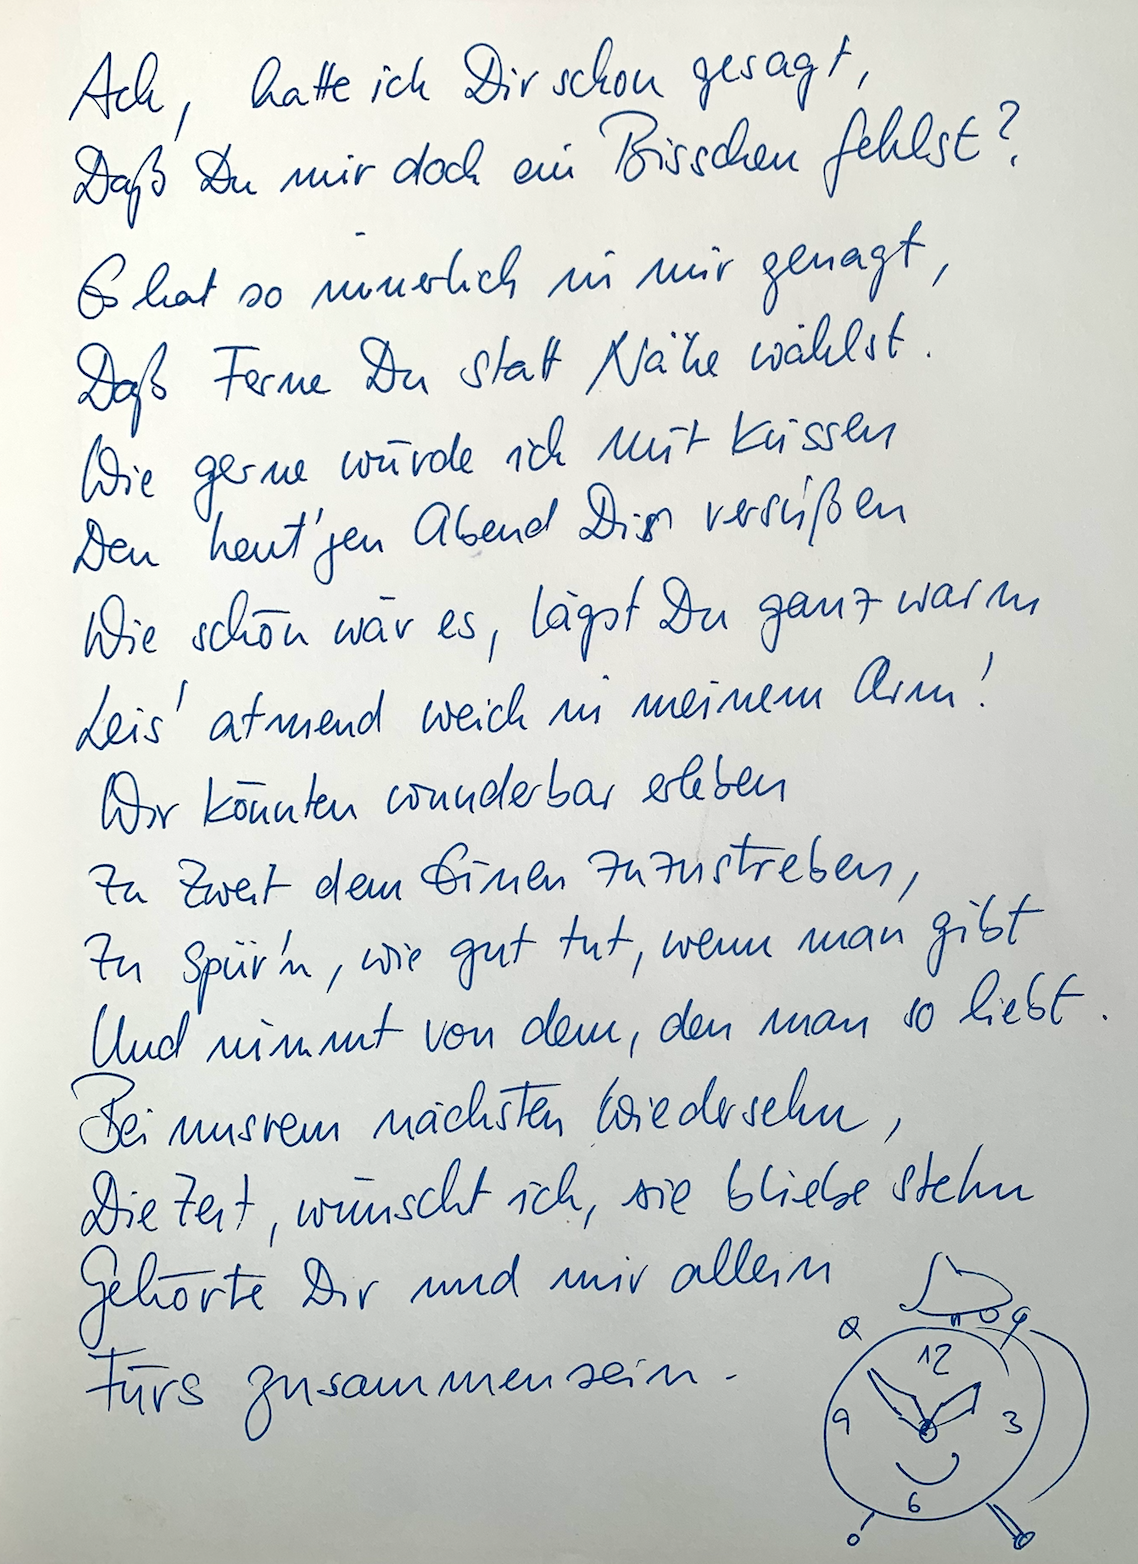 Ach, hatte ich Dir schon gesagt,
Daß Du mir doch ein Bisschen fehlst?
Es hat so innerlich in mir genagt,
Daß Ferne Du statt Nähe wählst.
Wie gerne würde ich mit Küssen
Den heut'gen Abend Dir versüßen
Wie schön wär es, lägst Du ganz warm
Leis' atmend weich in meinem Arm!
Wir könnten wunderbar erleben
Zu Zweit dem Einen zuzustreben,
Zu Spür'n, wie gut tut, wenn man gibt
Und nimmt von dem, den man so liebt.
Bei unsrem nächsten Wiedersehn,
Die Zeit, wünscht ich, sie bliebe stehn
Gehörte Dir und mir allein
Fürs zusammensein.
12
9 3
6